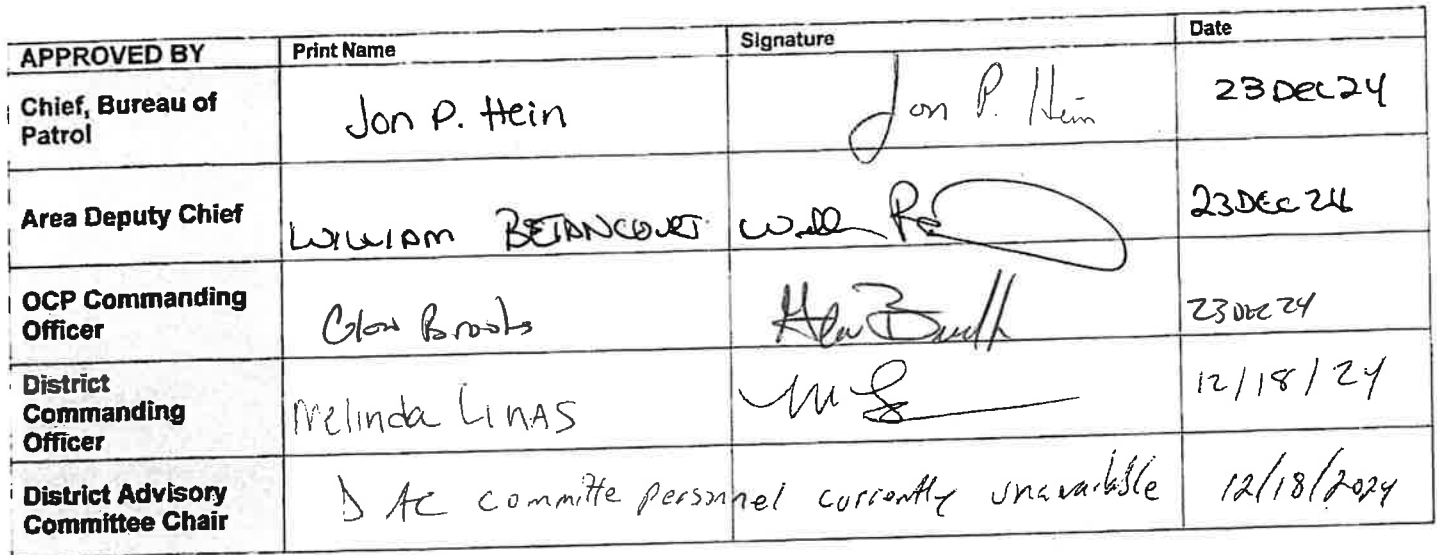 APPROVED BY Print Name Signature Date
Chief, Bureau of Patrol Jon P. Hein Jon P. Hein 23 Dec 24
Area Deputy Chief WILLIAM BETANCOURT 23 DEC 24
OCP Commanding Officer Glen Brooks 23 DEC 24
District Commanding Officer Melinda LINAS 12/18/24
District Advisory Committee Chair DAC committe personnel currently unavailable 12/18/2024